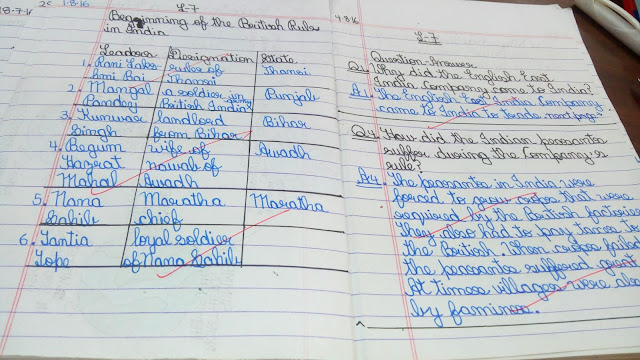 8-7-V 2C 1-8-16
L-7
Beginning of the British Rule
in India
Leaders Designation State
1. Rani Laks- ruler of Jhansi
hmi Bai Jhansi
2. Mangal a soldier in Punjab
Pandey British India
3. Kunwar landlord Bihar
Singh from Bihar
4. Begum wife of Awadh
Hazrat nawab of
Mahal Awadh
5. Nana Maratha Maratha
Sahib chief
6. Tantia loyal soldier
Tope of Nana Sahib
4-8-16
L-7
Question-Answer
Q1. Why did the English East
India Company come to India?
A1. The English East India Company
came to India to trade
Q4. How did the Indian peasants
suffer during the Company's
rule?
A4. The peasants in India were
forced to grow crops that were
required by the British factories
They also had to pay taxes to
the British. When crops failed
the peasants suffered great
At times villages were also
by famines.